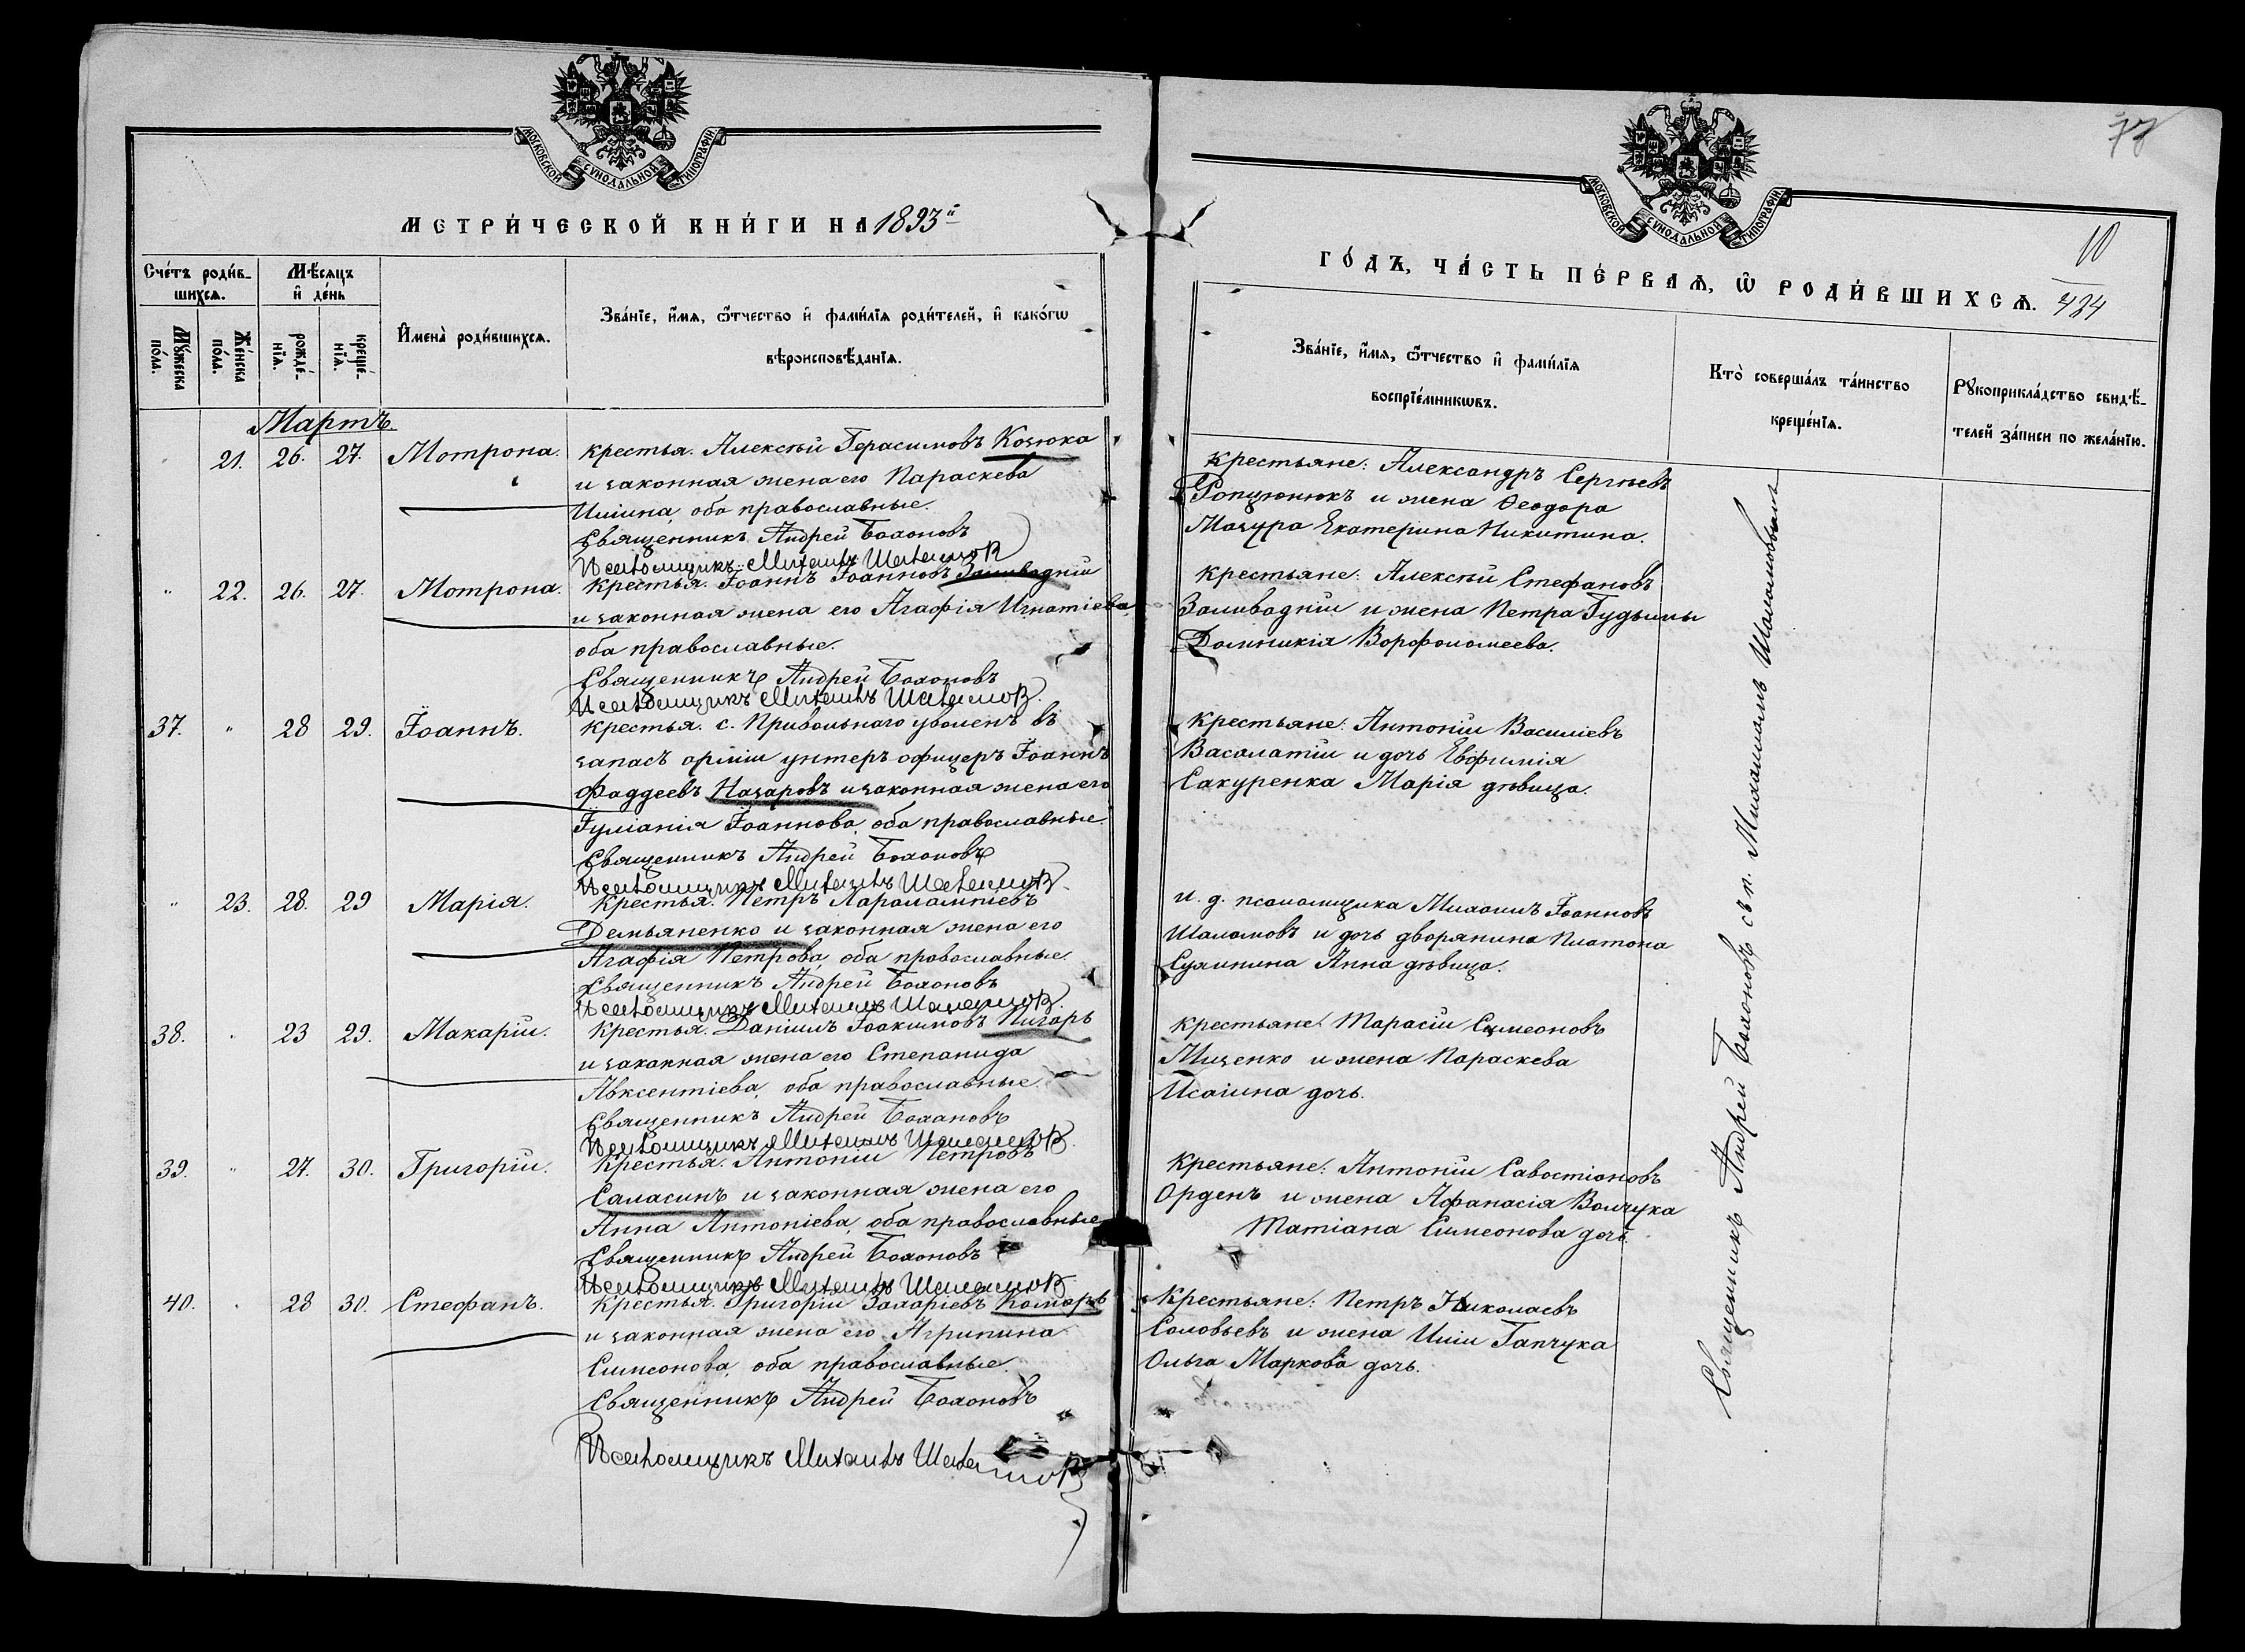 МОСКОВСКОЙ СѴНОДАЛЬНОЙ ТИПОГРАФІИ
МЕТРИ́ЧЕСКОЙ КНИ́ГИ НА 1893й
Сче́тъ роди́в-
шихсѧ.
Мѣ́сѧцъ
и҆ де́нь
Мꙋ́жеска
по́ла.
Же́нска
по́ла.
рожде́-
нїѧ.
креще́-
нїѧ.
И҆мена̀ роди́вшихсѧ.
Зва́нїе, и҆́мѧ, ѻ҆́тчество и҆ фами́лїѧ роди́телей, и҆ како́гѡ
вѣроисповѣ́данїѧ.
Мартъ.
21. 26. 27. Мотрона. крестья. Алексѣй Герасимовъ Козюка
и законная жена его Параскева
Иліина, оба православные.
Священникъ Андрей Балановъ
Псаломщикъ Михаилъ Шаламов
" 22. 26. 27. Мотрона. крестья. Іоаннъ Іоанновъ Заливадній
и законная жена его Агафія Игнатіева
оба православные.
Священникъ Андрей Балановъ
Псаломщикъ Михаилъ Шаламов.
37. " 28 29. Іоаннъ. крестья. с. Привольнаго уволенъ въ
запасъ арміи унтеръ офицеръ Іоаннъ
Фаддеевъ Назаровъ и законная жена его
Іуліанія Іоаннова, оба православные.
Священникъ Андрей Балановъ
Псаломщикъ Михаилъ Шаламов.
" 23. 28. 29 Марія. крестья. Петръ Харалампіевъ
Демьяненко и законная жена его
Агафія Петрова, оба православные.
Священникъ Андрей Балановъ
Псаломщикъ Михаилъ Шаламов.
38. " 23 29. Макарій. крестья. Даніилъ Іоакимовъ Пигарь
и законная жена его Степанида
Авксентіева, оба православные.
Священникъ Андрей Балановъ
Псаломщикъ Михаилъ Шаламов.
39. " 27. 30. Григорій. крестья. Антоній Петровъ
Саласинъ и законная жена его
Анна Антоніева, оба православные
Священникъ Андрей Балановъ
Псаломщикъ Михаилъ Шаламов
40. " 28 30. Стефанъ. крестья. Григорій Захаріевъ Комаръ
и законная жена его Агрипина
Симеонова, оба православные.
Священникъ Андрей Балановъ
Псаломщикъ Михаилъ Шаламов
МОСКОВСКОЙ СѴНОДАЛЬНОЙ ТИПОГРАФІИ
10
ГО́ДЪ, ЧА́СТЬ ПЕ́РВАѦ, Ѡ҆ РОДИ́ВШИХСѦ. 484
Зва́нїе, и҆́мѧ, ѻ҆́тчество и҆ фами́лїѧ
воспрїе́мникѡвъ.
Кто̀ соверша́лъ та́инство
креще́нїѧ.
Рꙋкоприкла́дство свидѣ́-
телей за́писи по жела́нїю.
крестьяне: Александръ Сергѣевъ
и жена Ѳеодора
Мазура Екатерина Никитина.
крестьяне: Алексѣй Стефановъ
Заливадній и жена Петра Гудымы
Домникія Ворфоломеева.
крестьяне: Антоній Василіевъ
Васалатій и дочь Евфимія
Сакуренка Марія дѣвица.
и. д. псаломщика Михаилъ Іоанновъ
Шаламовъ и дочь дворянина Платона
Сулимина Анна дѣвица.
крестьяне: Тарасій Симеоновъ
Мизенко и жена Параскева
Исаіина дочь.
крестьяне: Антоній Савостіановъ
Орденъ и жена Афанасія Волчука
Татіана Симеонова дочь.
Крестьяне: Петръ Николаевъ
Соловьевъ и жена Иліи Гапчука
Ольга Маркова дочь.
Священникъ Андрей Балановъ съ п. Михаиломъ Шаламовымъ